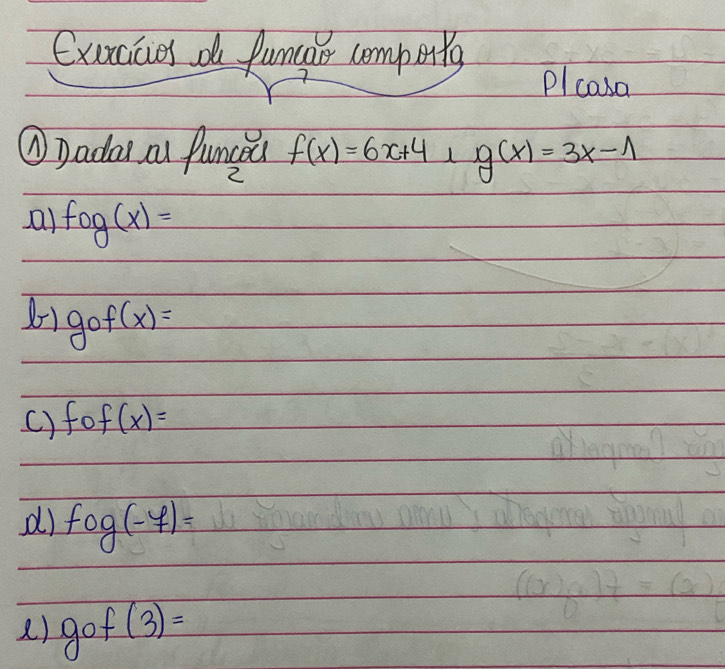 Exercícios de função composta
P/ casa
① Dadas as funções f(x)=6x+4 e g(x)=3x-1
a) fog(x)=
b) gof(x)=
c) fof(x)=
d) fog(-7)=
e) gof(3)=